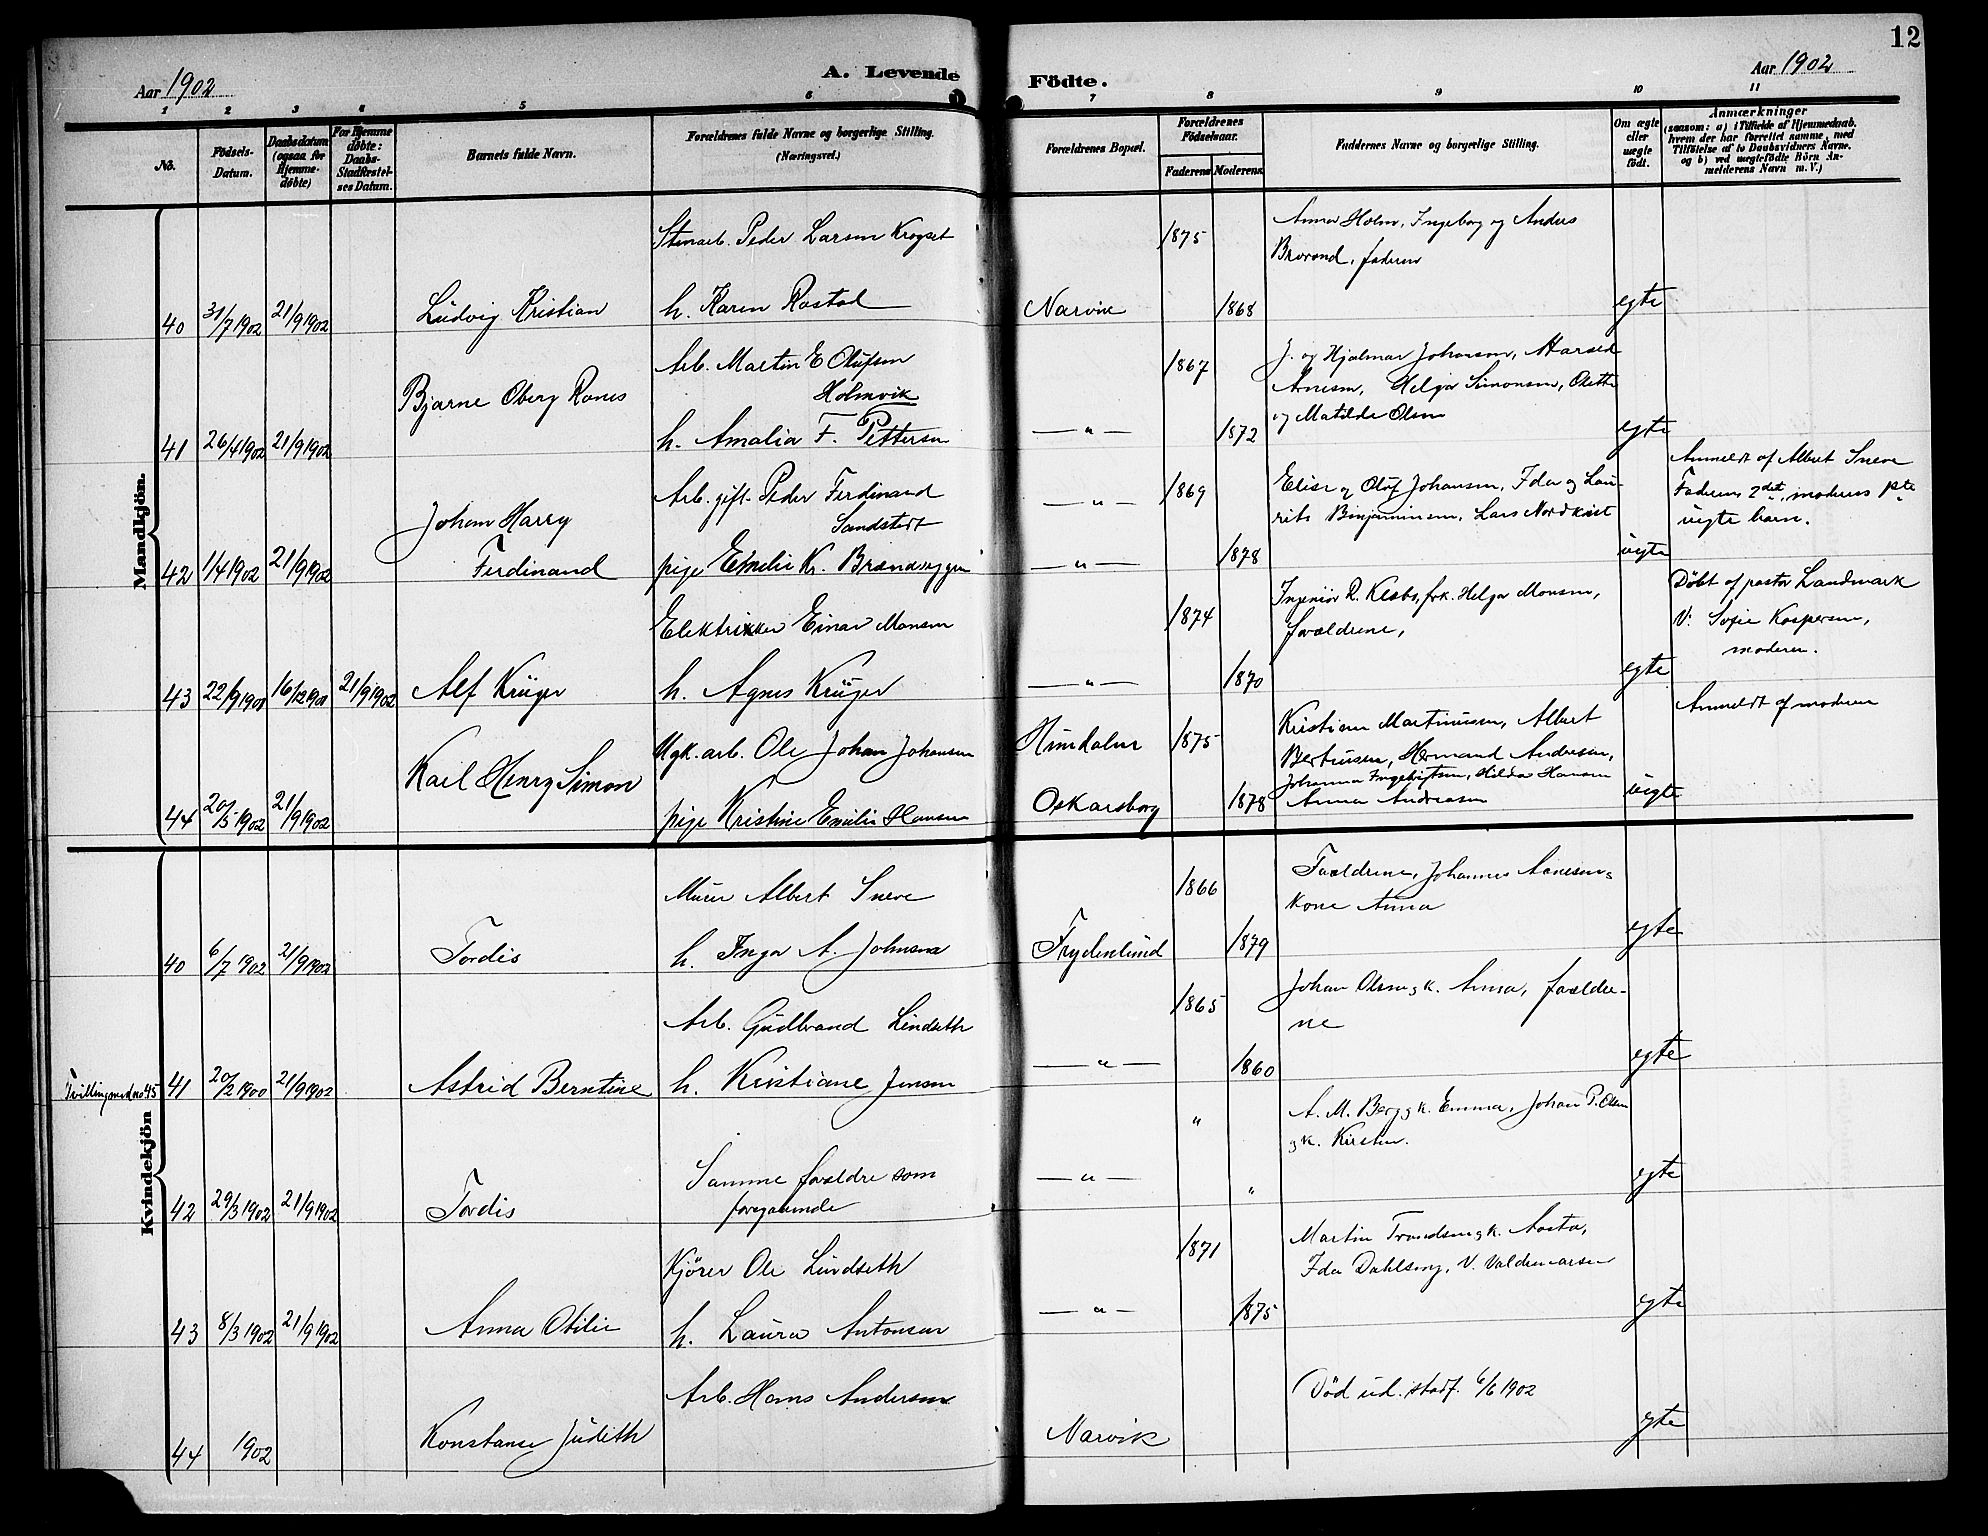 12
Aar 1902
A. Levende Födte.
Aar 1902
1 2 3 4 5 6 7 8 9 10 11
No.
Födsels-Datum.
Daabsdatum (ogsaa for Hjemmedøbte)
For Hjemmedøbte: Daabs-Stadfæstelses Datum.
Barnets fulde Navn.
Forældrenes fulde Navne og borgerlige Stilling. (Næringsvei.)
Forældrenes Bopæl.
Forældrenes Födselsaar.
Faderens Moderens
Fuddernes Navne og borgerlige Stilling.
Om ægte eller uægte födt.
Anmærkninger
(saasom: a) i Tilfælde af Hjemmedaab, hvem der har forrettet samme, med Tilföielse af to Daabsvidners Navne, og b) ved uægtefödte Börn Anmelderens Navn m. V.)
Mandkjön.
Stenarb. Peder Larsen
1875
Anna Holm, Ingeborg og Anders
faderen
40 31/7 1902 21/9 1902 Ludvig Kristian h. Karen Rostad Narvik 1868 egte
Arb. Martin E Olufsen
Holmvik
1867
J. og Hjalmar Johansen,
Helga Simonsen,
og Matilde Olsen
Bjarne Oberg
41 26/4 1902 21/9 1902 h. Amalia F. Pettersen — " — 1872 egte
Arb. gift. Peder Ferdinand
Sandstedt
— " — 1869
Elise og Oluf Johansen, Ida og Lau-
rits Benjaminsen, Lars Nordkvist
Anmeldt af Albert Sneve
Faderens 2det, moderens 1ste
uegte barn.
Johan Harry
42 1/4 1902 21/9 1902 Ferdinand pige Emelie Kr. — " — 1878 uegte
Elektrikker Einar Monsen
1874
Ingeniör R. frk. Helga Monsen,
forældrene,
Döbt af pastor Landmark
V: Sofie Kaspersen,
moderen.
43 22/9 1901 16/12 1901 21/9 1902 Alf Krüger h. Agnes Krüger — " — 1870 egte
Anmeldt af moderen
arb. Ole Johan Johansen
Hundalen 1875
Martinussen, Albert
Berntussen, Hermand Andresen,
Johanna Ingebrigtsen, Hilda Hansen
Karl Henry Simon
44 20/5 1902 21/9 1902 pige Kristine Emilie Hansen Oskarsborg 1878 Anna Andreasen uegte
Kvindekjön
Murer Albert Sneve
1866
Forældrene, Johannes
kone Anna
40 6/7 1902 21/9 1902 Tordis h. Inga A. Johnsen Frydenlund 1879 egte
Arb. Gudbrand Lindseth
1865
Johan Olsen g k. Anna, forældre-
ne
Tvilling med no 45
41 20/2 1900 21/9 1902 Astrid Berntine h. Kristiane Jensen — " — 1860 egte
"
A. M. Berg g k. Emma, Johan P. Olsen
g k. Kirsten.
42 29/3 1902 21/9 1902 Tordis Samme forældre som
foregaaende
— " — " egte
Kjörer Ole Lindseth
1871
Martin Trondsen g k. Aasta,
Ida V. Valdemarsen
43 8/3 1902 21/9 1902 Anna Otilie h. Laura Antonsen — " — 1875 egte
Arb. Hans Andersen
Död ud. stadf. 6/6 1902
44 1902 Konstanse Judith Narvik egte